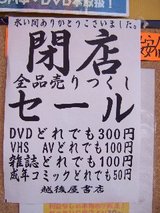 永い間ありがとうございました。
閉店
全品売りつくし
セール
DVDどれでも300円
VHS AVどれでも100円
雑誌どれでも100円
成年コミックどれでも50円
越後屋書店